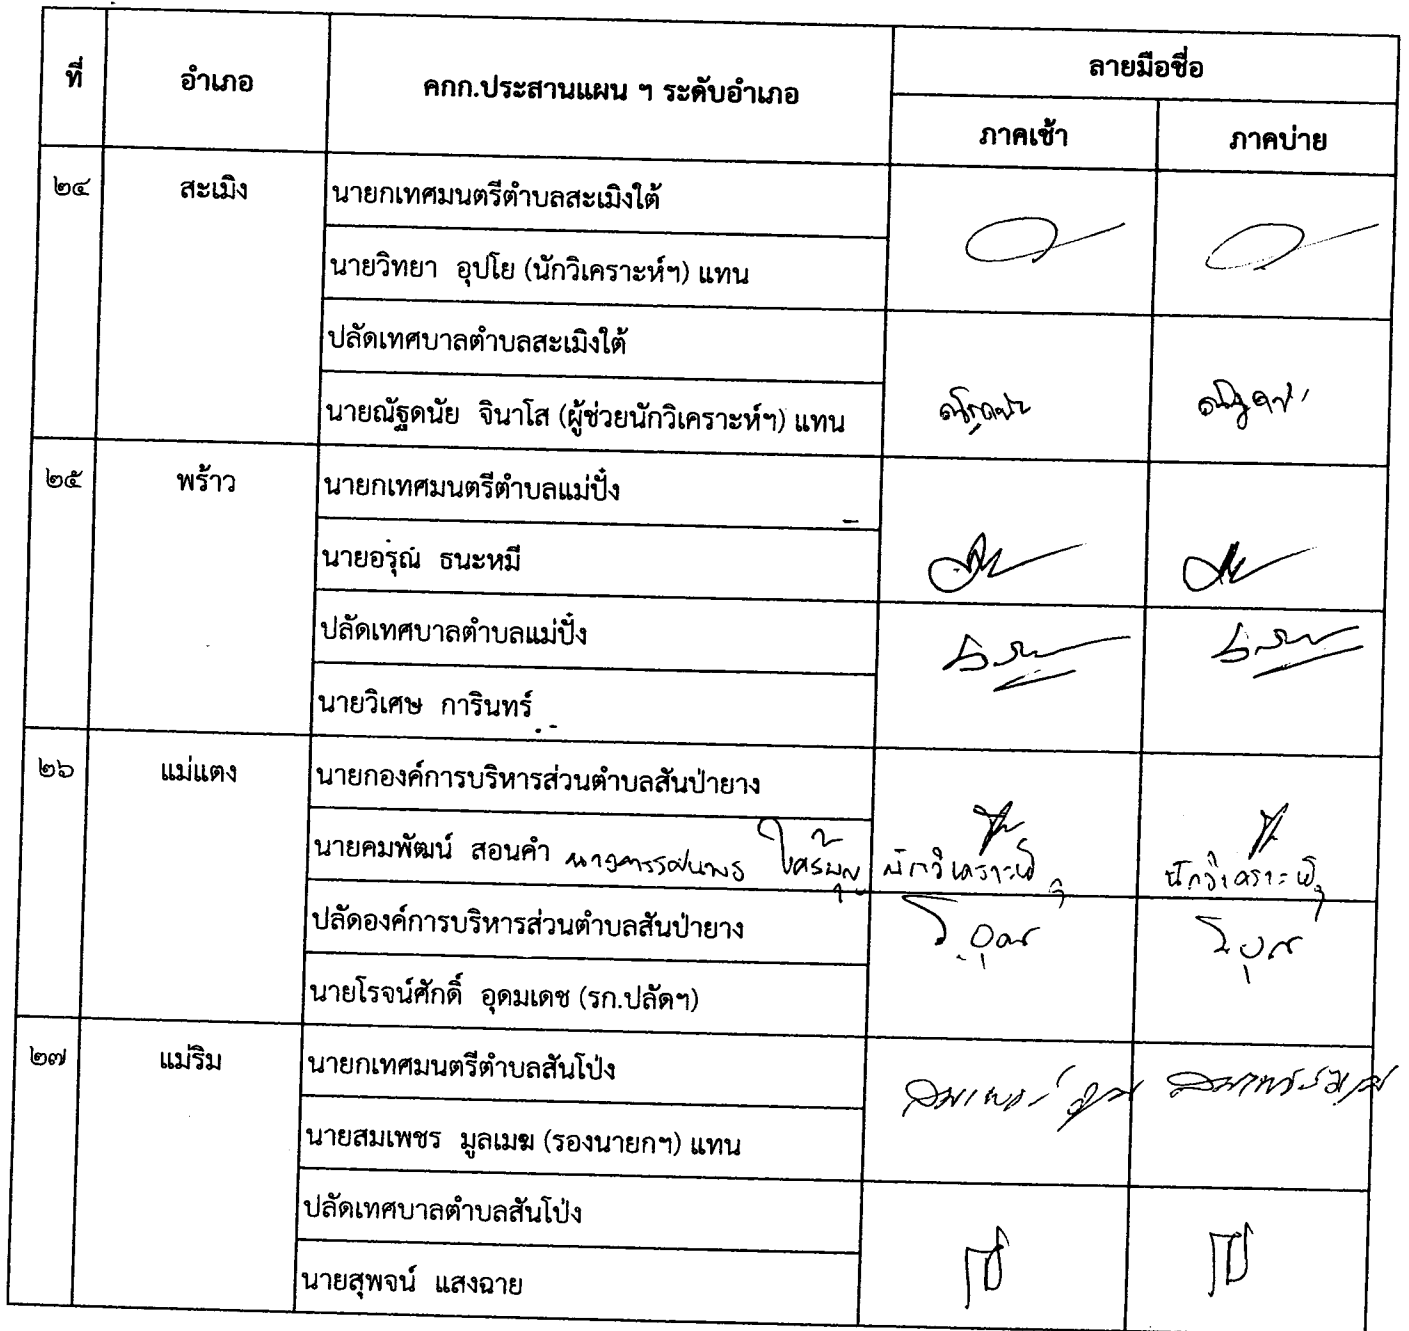 ที่ อำเภอ คกก.ประสานแผน ฯ ระดับอำเภอ ลายมือชื่อ
ภาคเช้า ภาคบ่าย
๒๔ สะเมิง นายกเทศมนตรีตำบลสะเมิงใต้
นายวิทยา อุปโย (นักวิเคราะห์ฯ) แทน
ปลัดเทศบาลตำบลสะเมิงใต้
นายณัฐดนัย จินาโส (ผู้ช่วยนักวิเคราะห์ฯ) แทน
๒๕ พร้าว นายกเทศมนตรีตำบลแม่ปั๋ง
นายอรุณ ธนะหมี
ปลัดเทศบาลตำบลแม่ปั๋ง
นายวิเศษ การินทร์
๒๖ แม่แตง นายกองค์การบริหารส่วนตำบลสันป่ายาง
นายคมพัฒน์ สอนคำ นักวิเคราะห์ฯ นักวิเคราะห์ฯ
ปลัดองค์การบริหารส่วนตำบลสันป่ายาง
นายโรจน์ศักดิ์ อุดมเดช (รก.ปลัดฯ)
๒๗ แม่ริม นายกเทศมนตรีตำบลสันโป่ง
นายสมเพชร มูลเมฆ (รองนายกฯ) แทน
ปลัดเทศบาลตำบลสันโป่ง
นายสุพจน์ แสงฉาย